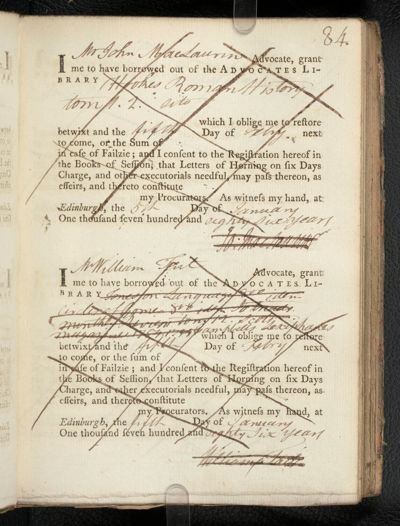 84.
I Mr John MacLaurin Advocate, grant
me to have borrowed out of the ADVOCATES LI-
BRARY Hookes Roman History
tom. 1. 2. 8vo
which I oblige me to reſtore
betwixt and the fifth Day of Febry next
to come, or the Sum of
in caſe of Failzie; and I conſent to the Regiſtration hereof in
the Books of Seſſion, that Letters of Horning on ſix Days
Charge, and other executorials needful, may paſs thereon, as
effeirs, and thereto conſtitute
my Procurators. As witneſs my hand, at
Edinburgh, the 5th Day of January
One thouſand ſeven hundred and eighty Six years
I Mr William Advocate, grant
me to have borrowed out of the ADVOCATES LI-
BRARY
Campbells Lexiphanes
which I oblige me to reſtore
betwixt and the fifth Day of Febry next
to come, or the ſum of
in caſe of Failzie; and I conſent to the Regiſtration hereof in
the Books of Seſſion, that Letters of Horning on ſix Days
Charge, and other executorials needful, may paſs thereon, as
effeirs, and thereto conſtitute
my Procurators. As witneſs my hand, at
Edinburgh, the fifth Day of January
One thouſand ſeven hundred and eighty Six years
William